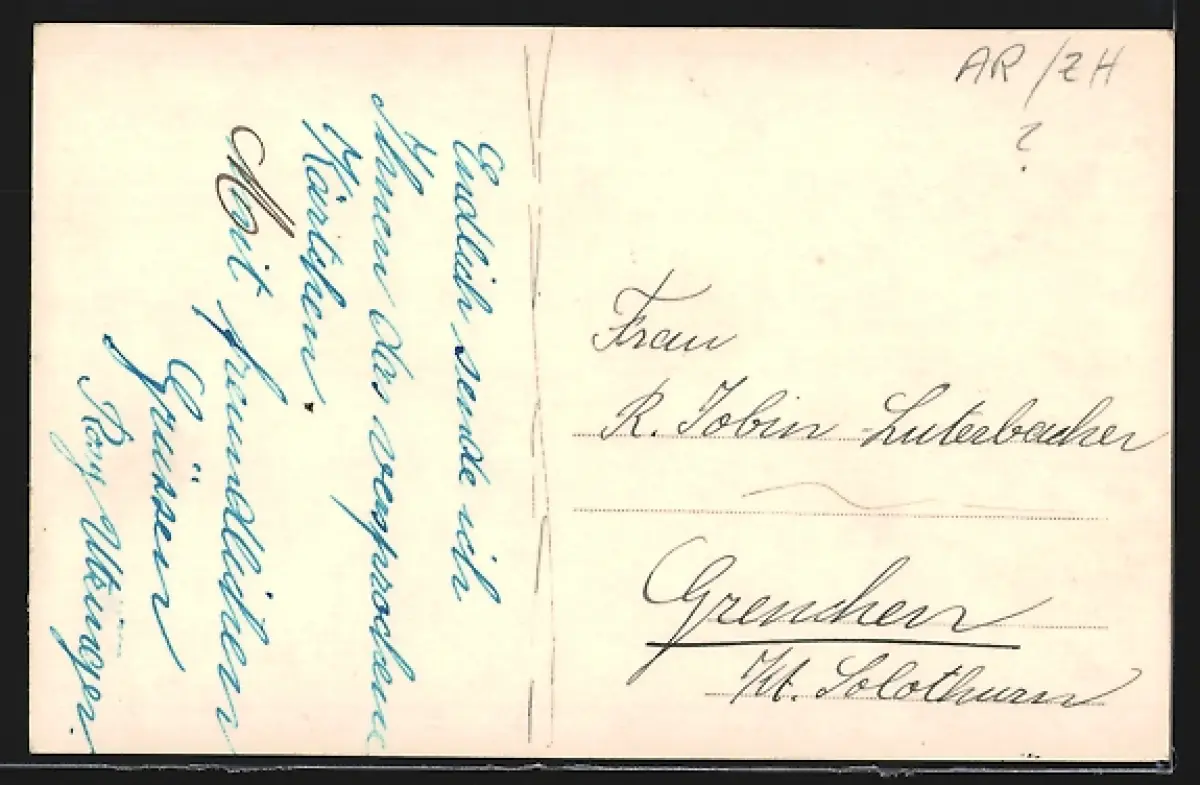 Endlich sende ich
Ihnen das versprochene
Kärtchen.
Mit freundlichen
Grüssen
AR/ZH
?
Frau
R. Tobin-Luterbacher
Grenchen
Kt. Solothurn